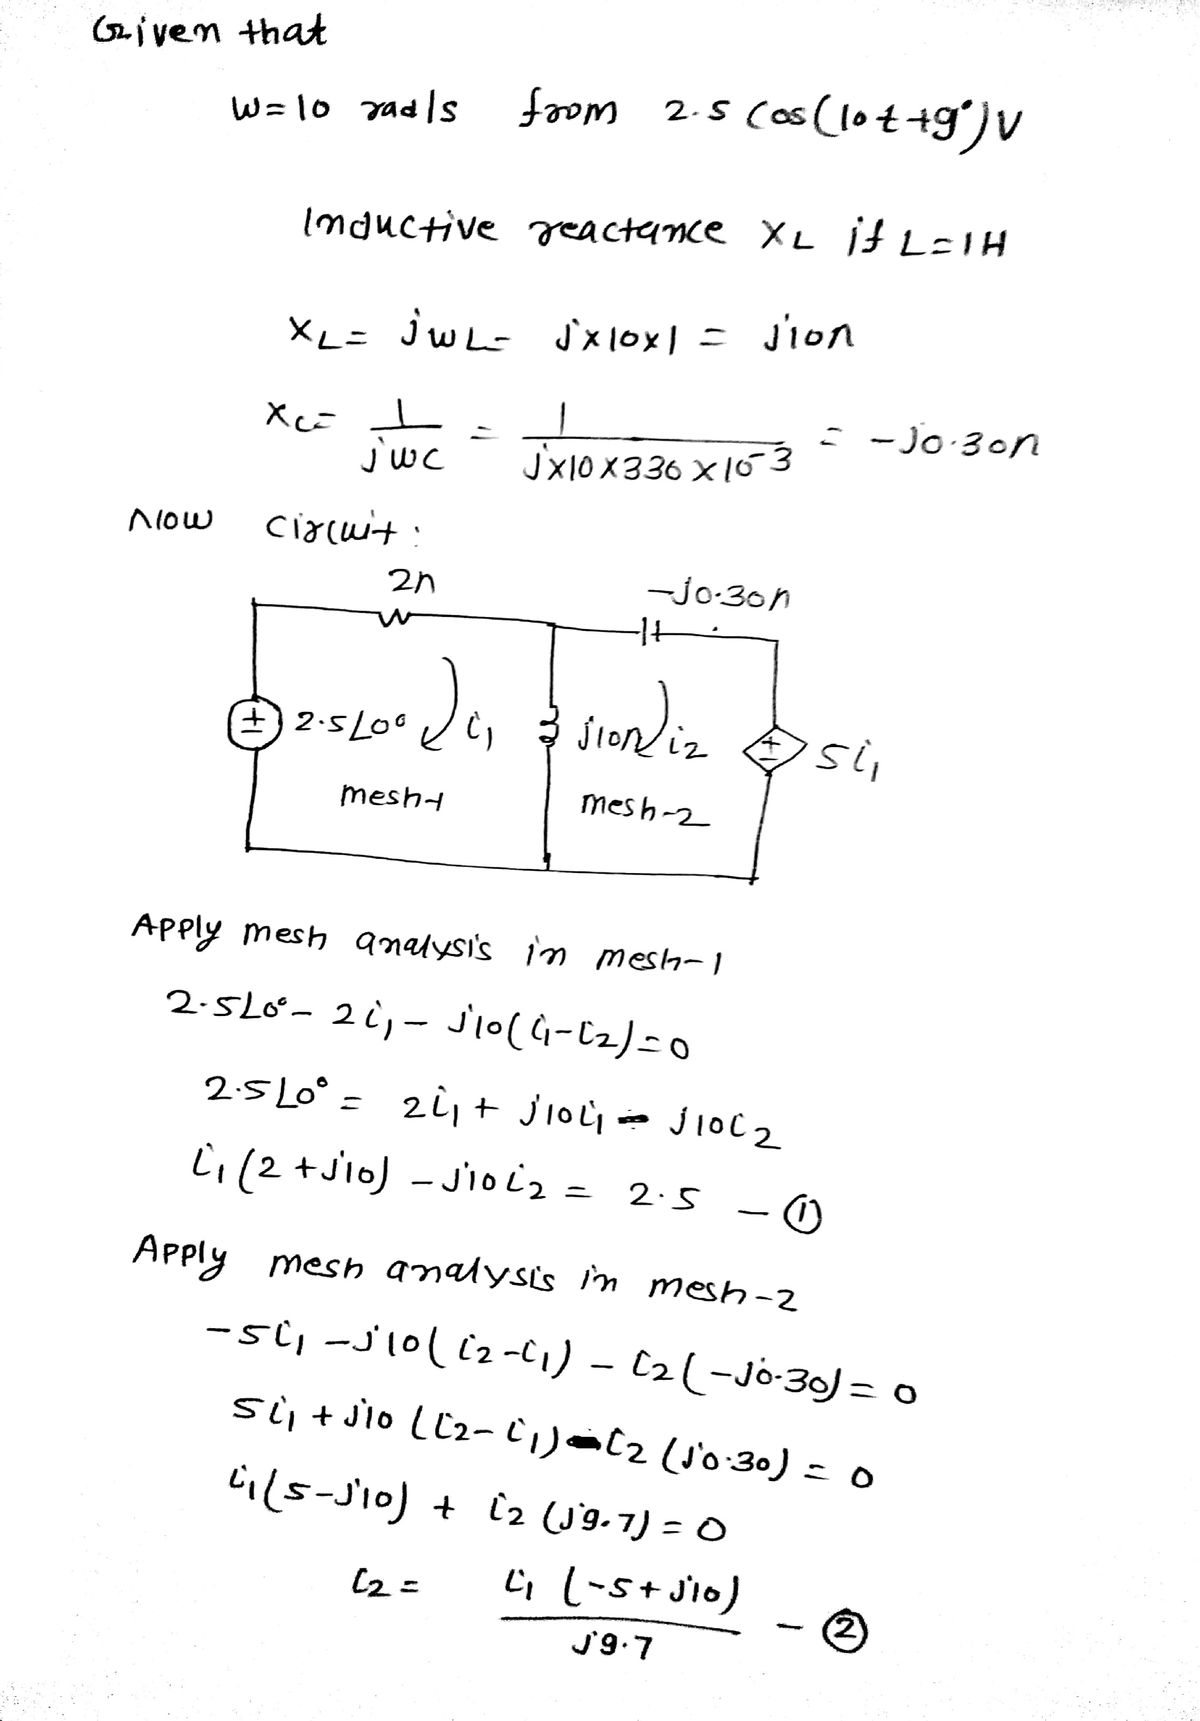 Given that
w=10 rad/s from 2.5 cos(10t+9°)V
Inductive reactance XL if L=1H
XL= jwL= j×10×1 = j10n
Xc= 1/jwc = 1/j×10×330×10^-3 = -j0.30n
Now circuit:
2n
-j0.30n
2.5∠0° i1 j10n i2 5i1
mesh-1 mesh-2
Apply mesh analysis in mesh-1
2.5∠0° - 2i1 - j10(i1-i2)=0
2.5∠0° = 2i1 + j10i1 - j10i2
i1(2+j10) - j10i2 = 2.5 - ①
Apply mesh analysis in mesh-2
-5i1 - j10(i2-i1) - i2(-j0.30) = 0
5i1 + j10(i2-i1) - i2(j0.30) = 0
i1(5-j10) + i2(j9.7) = 0
i2 = i1(-5+j10)/j9.7 - ②